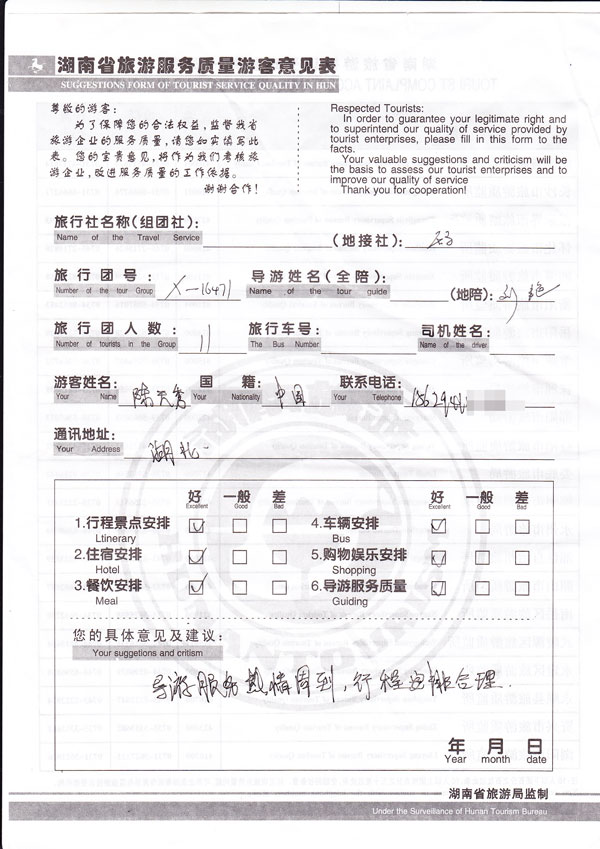 湖南省旅游服务质量游客意见表
SUGGESTIONS FORM OF TOURIST SERVICE QUALITY IN HUN
尊敬的游客:
为了保障您的合法权益,监督我省
旅游企业的服务质量,请您如实填写此
表。您的宝贵意见,将作为我们考核旅
游企业,改进服务质量的工作依据。
谢谢合作!
Respected Tourists:
In order to guarantee your legitimate right and
to superintend our quality of service provided by
tourist enterprises, please fill in this form to the
facts.
Your valuable suggestions and criticism will be
the basis to assess our tourist enterprises and to
improve our quality of service
Thank you for cooperation!
旅行社名称(组团社): (地接社):
Name of the Travel Service
旅行团号: X-16471 导游姓名(全陪): (地陪):
Number of the tour Group Name of the tour guide
旅行团人数: 11 旅行车号: 司机姓名:
Number of tourists in the Group The Bus Number Name of the driver
游客姓名: 国籍: 中国 联系电话:
Your Name Your Nationality Your Telephone
通讯地址: 湖北
Your Address
好 一般 差 好 一般 差
Excellent Good Bad Excellent Good Bad
1.行程景点安排 4.车辆安排
Ltinerary Bus
2.住宿安排 5.购物娱乐安排
Hotel Shopping
3.餐饮安排 6.导游服务质量
Meal Guiding
您的具体意见及建议:
Your suggetions and critism
导游服务热情周到,行程安排合理.
年 月 日
Year month date
湖南省旅游局监制
Under the Surveillance of Hunan Tourism Bureau